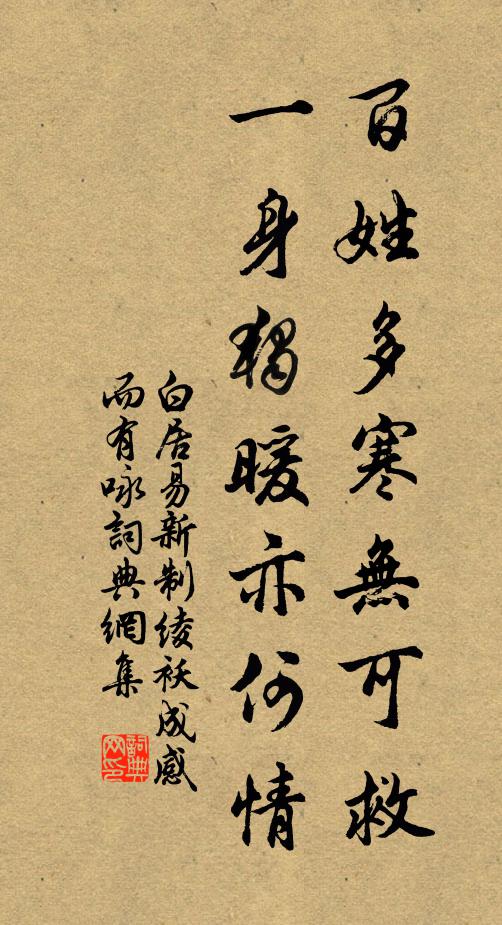 百姓多寒無可救
一身獨暖亦何情
白居易新制綾袄成感
而有咏詞典網集
詞典网印